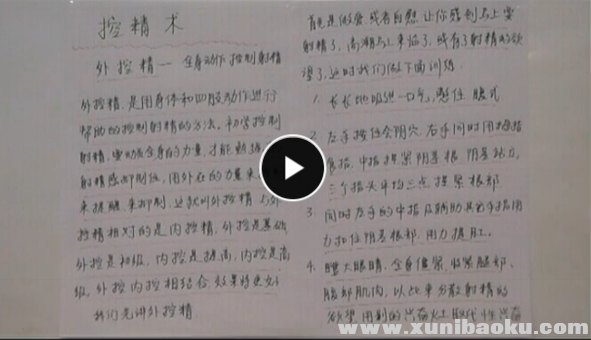 控精术
外控精一 全身动作控制射精
外控精,是用身体和四肢动作进行
帮助的控制射精的方法。初学控制
射精,要动员全身的力量,才能
射精感抑制住,用外在的力量来
来提醒,来抑制,这就叫外控精,与外
控精相对的是内控精,外控是基础,
外控是初级,内控是提高,内控是高
级。外控内控相结合,效果将更好
我们先讲外控精
首先是做爱或者自慰让你感到马上要
射精了,高潮马上来临了,或有了射精的欲
望了,这时我们做下面训练
1. 长长地吸进一口气,憋住
2. 左手按住会阴穴,右手同时用拇指
食指、中指捏紧阴茎根
三个指头平均三点捏紧根部
3. 同时左手的中指及辅助其它手指用
力扣住阴茎根部,用力提肛。
4. 瞪大眼睛,全身僵紧,收紧腿部、
腹部肌肉,以此来分散射精的
欲望
www.xunibaoku.com